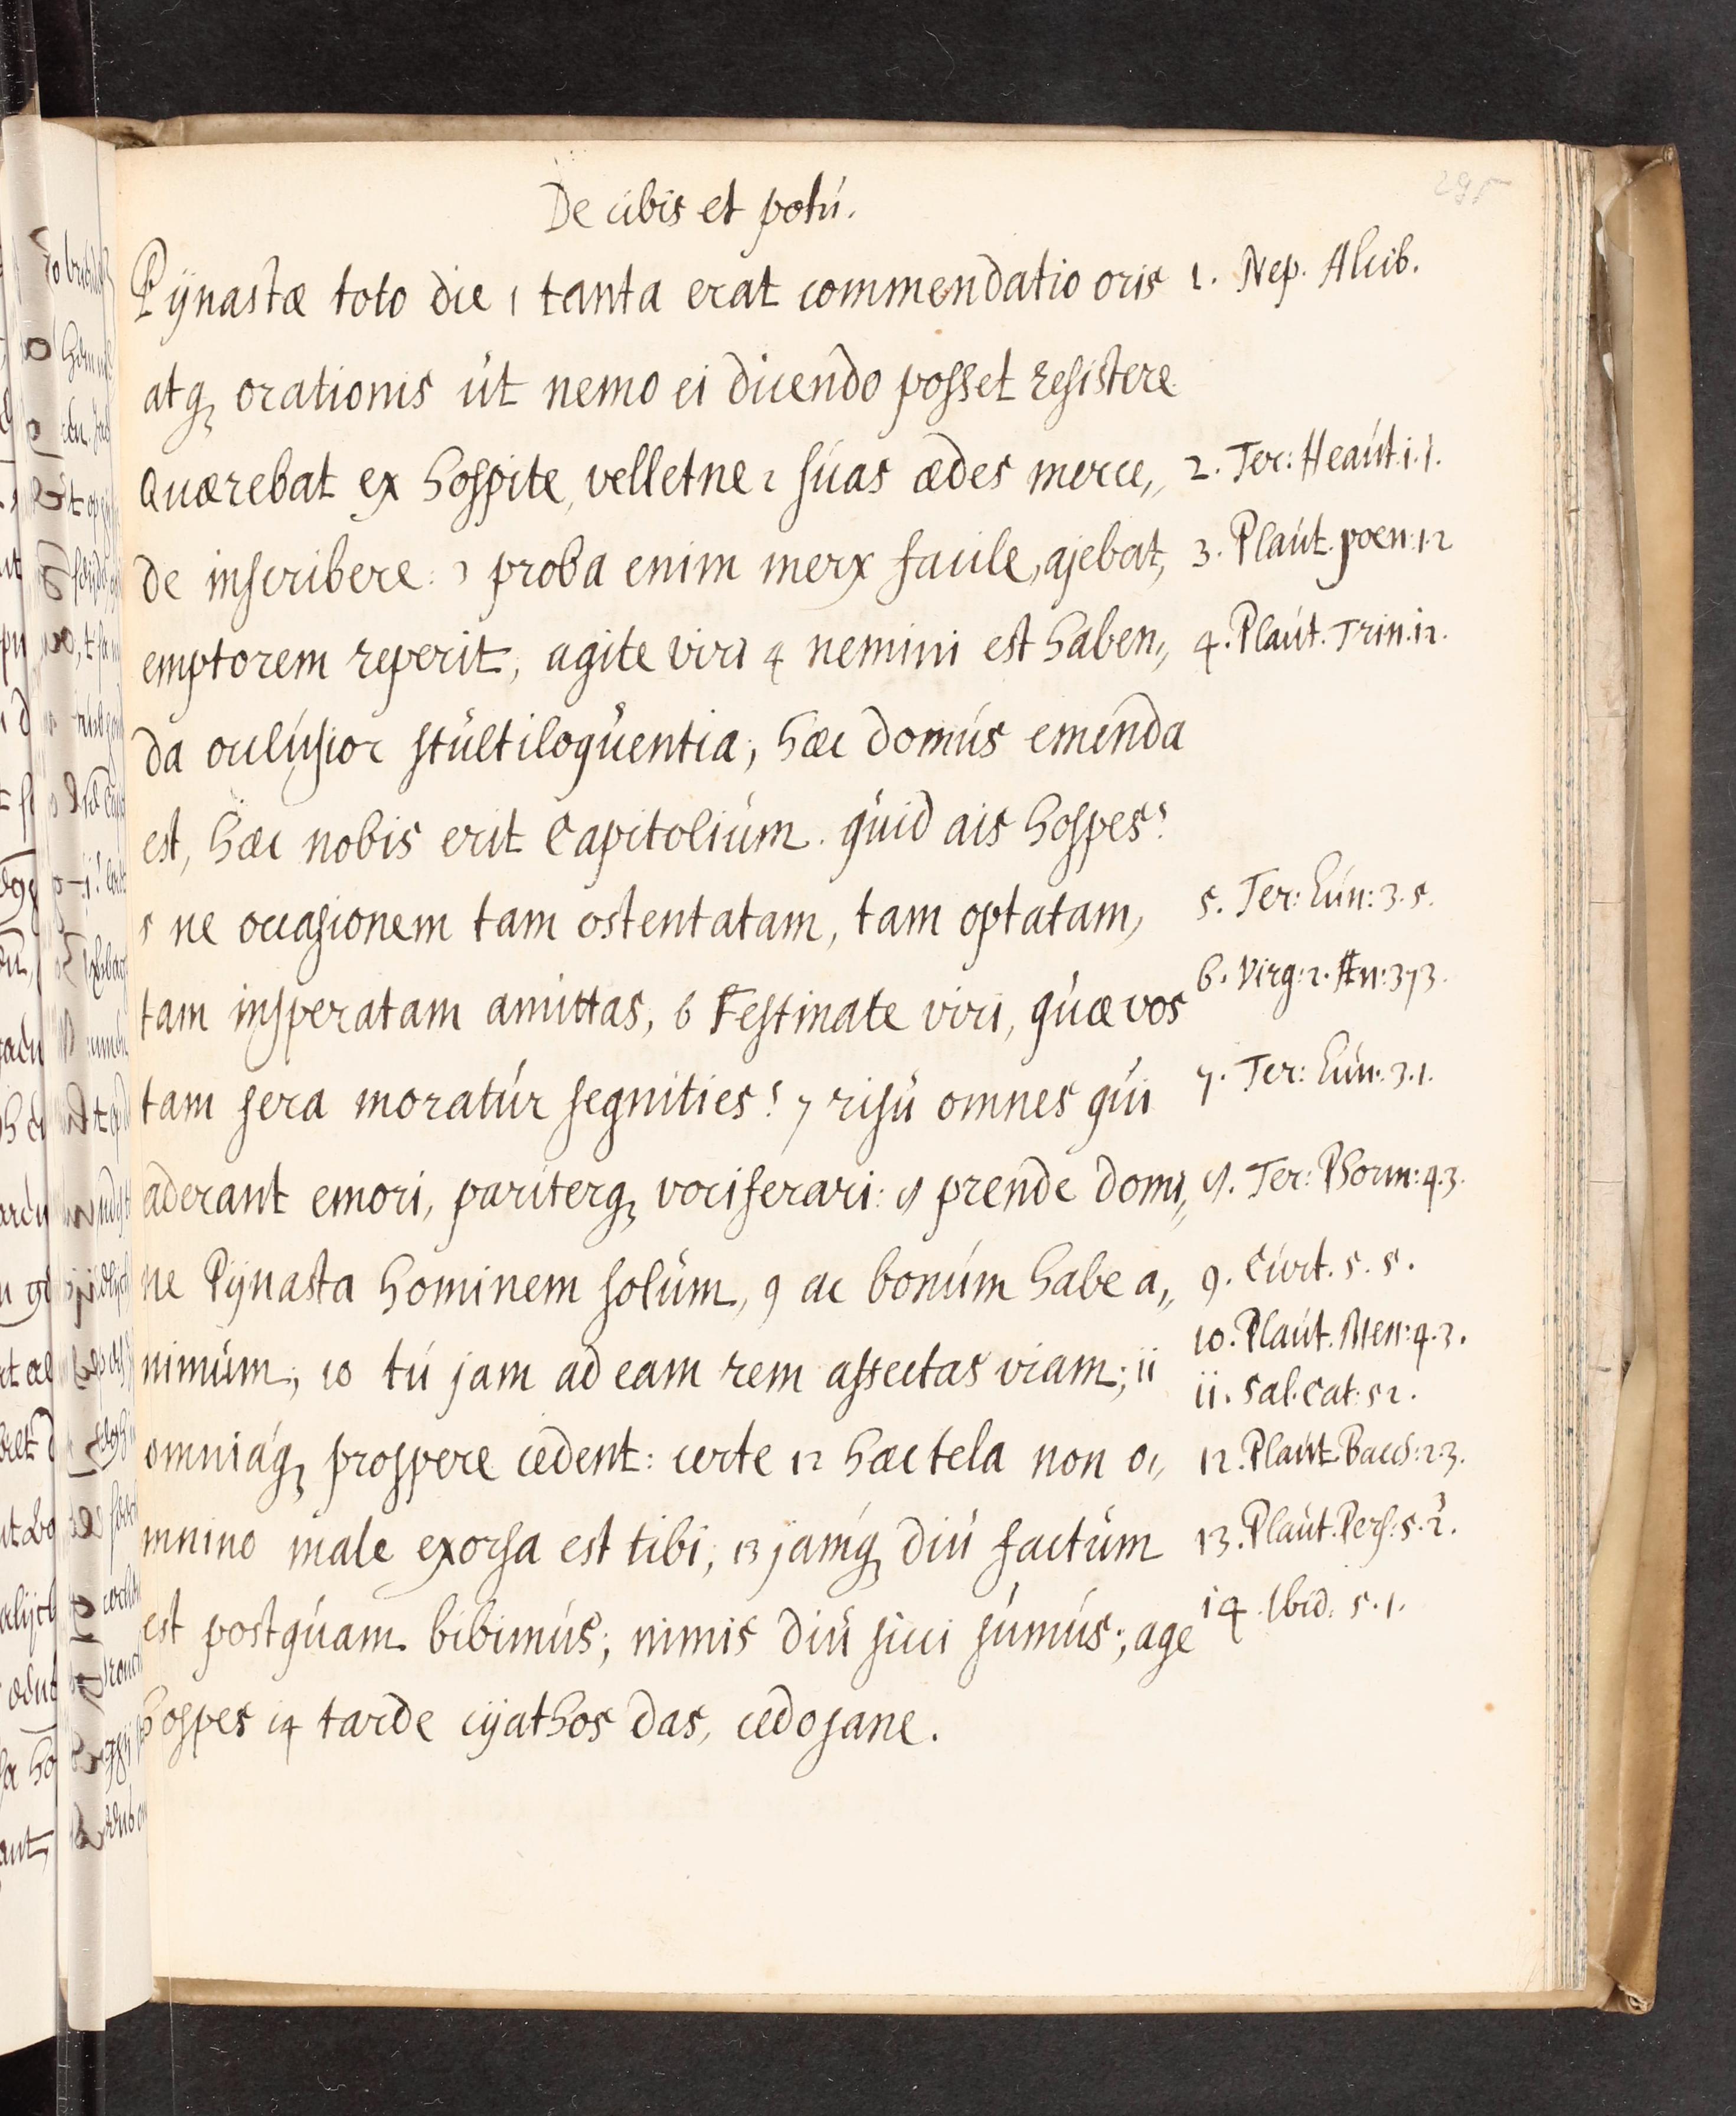 De cibis et potú.
295
Pÿnastæ toto die 1 tanta erat commendatio oris
1. Nep. Alcib.
atq; orationis út nemo ei dicendo posset resistere
Quærebat ex hospite, velletne 2 súas ædes merce,,
2. Ter: Heaút. 1. 1.
de inscribere: 3 proba enim merx facile, ajebat,
3. Plaút. poen. 1. 2
emptorem reperit, agite viri 4 nemini est haben,,
4. Plaút. Trin. 1 2.
da occlúsior stúltiloqúentia; hæc domús emenda
est, hæc nobis erit Capitoliúm. qúid ais hospes?
5 ne occasionem tam ostentatam, tam optatam,
5. Ter: Eún: 3. 5.
tam insperatam amittas, 6 Festinate viri, qúæ vos
6. Virg: 2. Æn: 373.
tam sera moratúr segnities? 7 risú omnes qúi
7. Ter: Eún: 3. 1.
aderant emori, pariterq; vociferari: 8 prende domi,,
8. Ter: Phorm: 4. 3.
ne Pÿnasta hominem solúm, 9 ac bonúm habe a,,
9. Cúrt. 5. 5.
nimúm; 10 tú jam ad eam rem affectas viam; 11
10. Plaút. Men: 4. 3.
11. Sal. Cat: 52.
omniáq; prospere cedent: certe 12 hæc tela non o,,
12. Plaút. Bacch: 2. 3.
mnino male exorsa est tibi; 13 jamq; diú factúm
13. Plaút. Pers: 5. 2.
est postqúam bibimús; nimis diú sicci súmús; age
14. Ibid. 5. 1.
hospes 14 tarde cÿathos das, cedo sane.